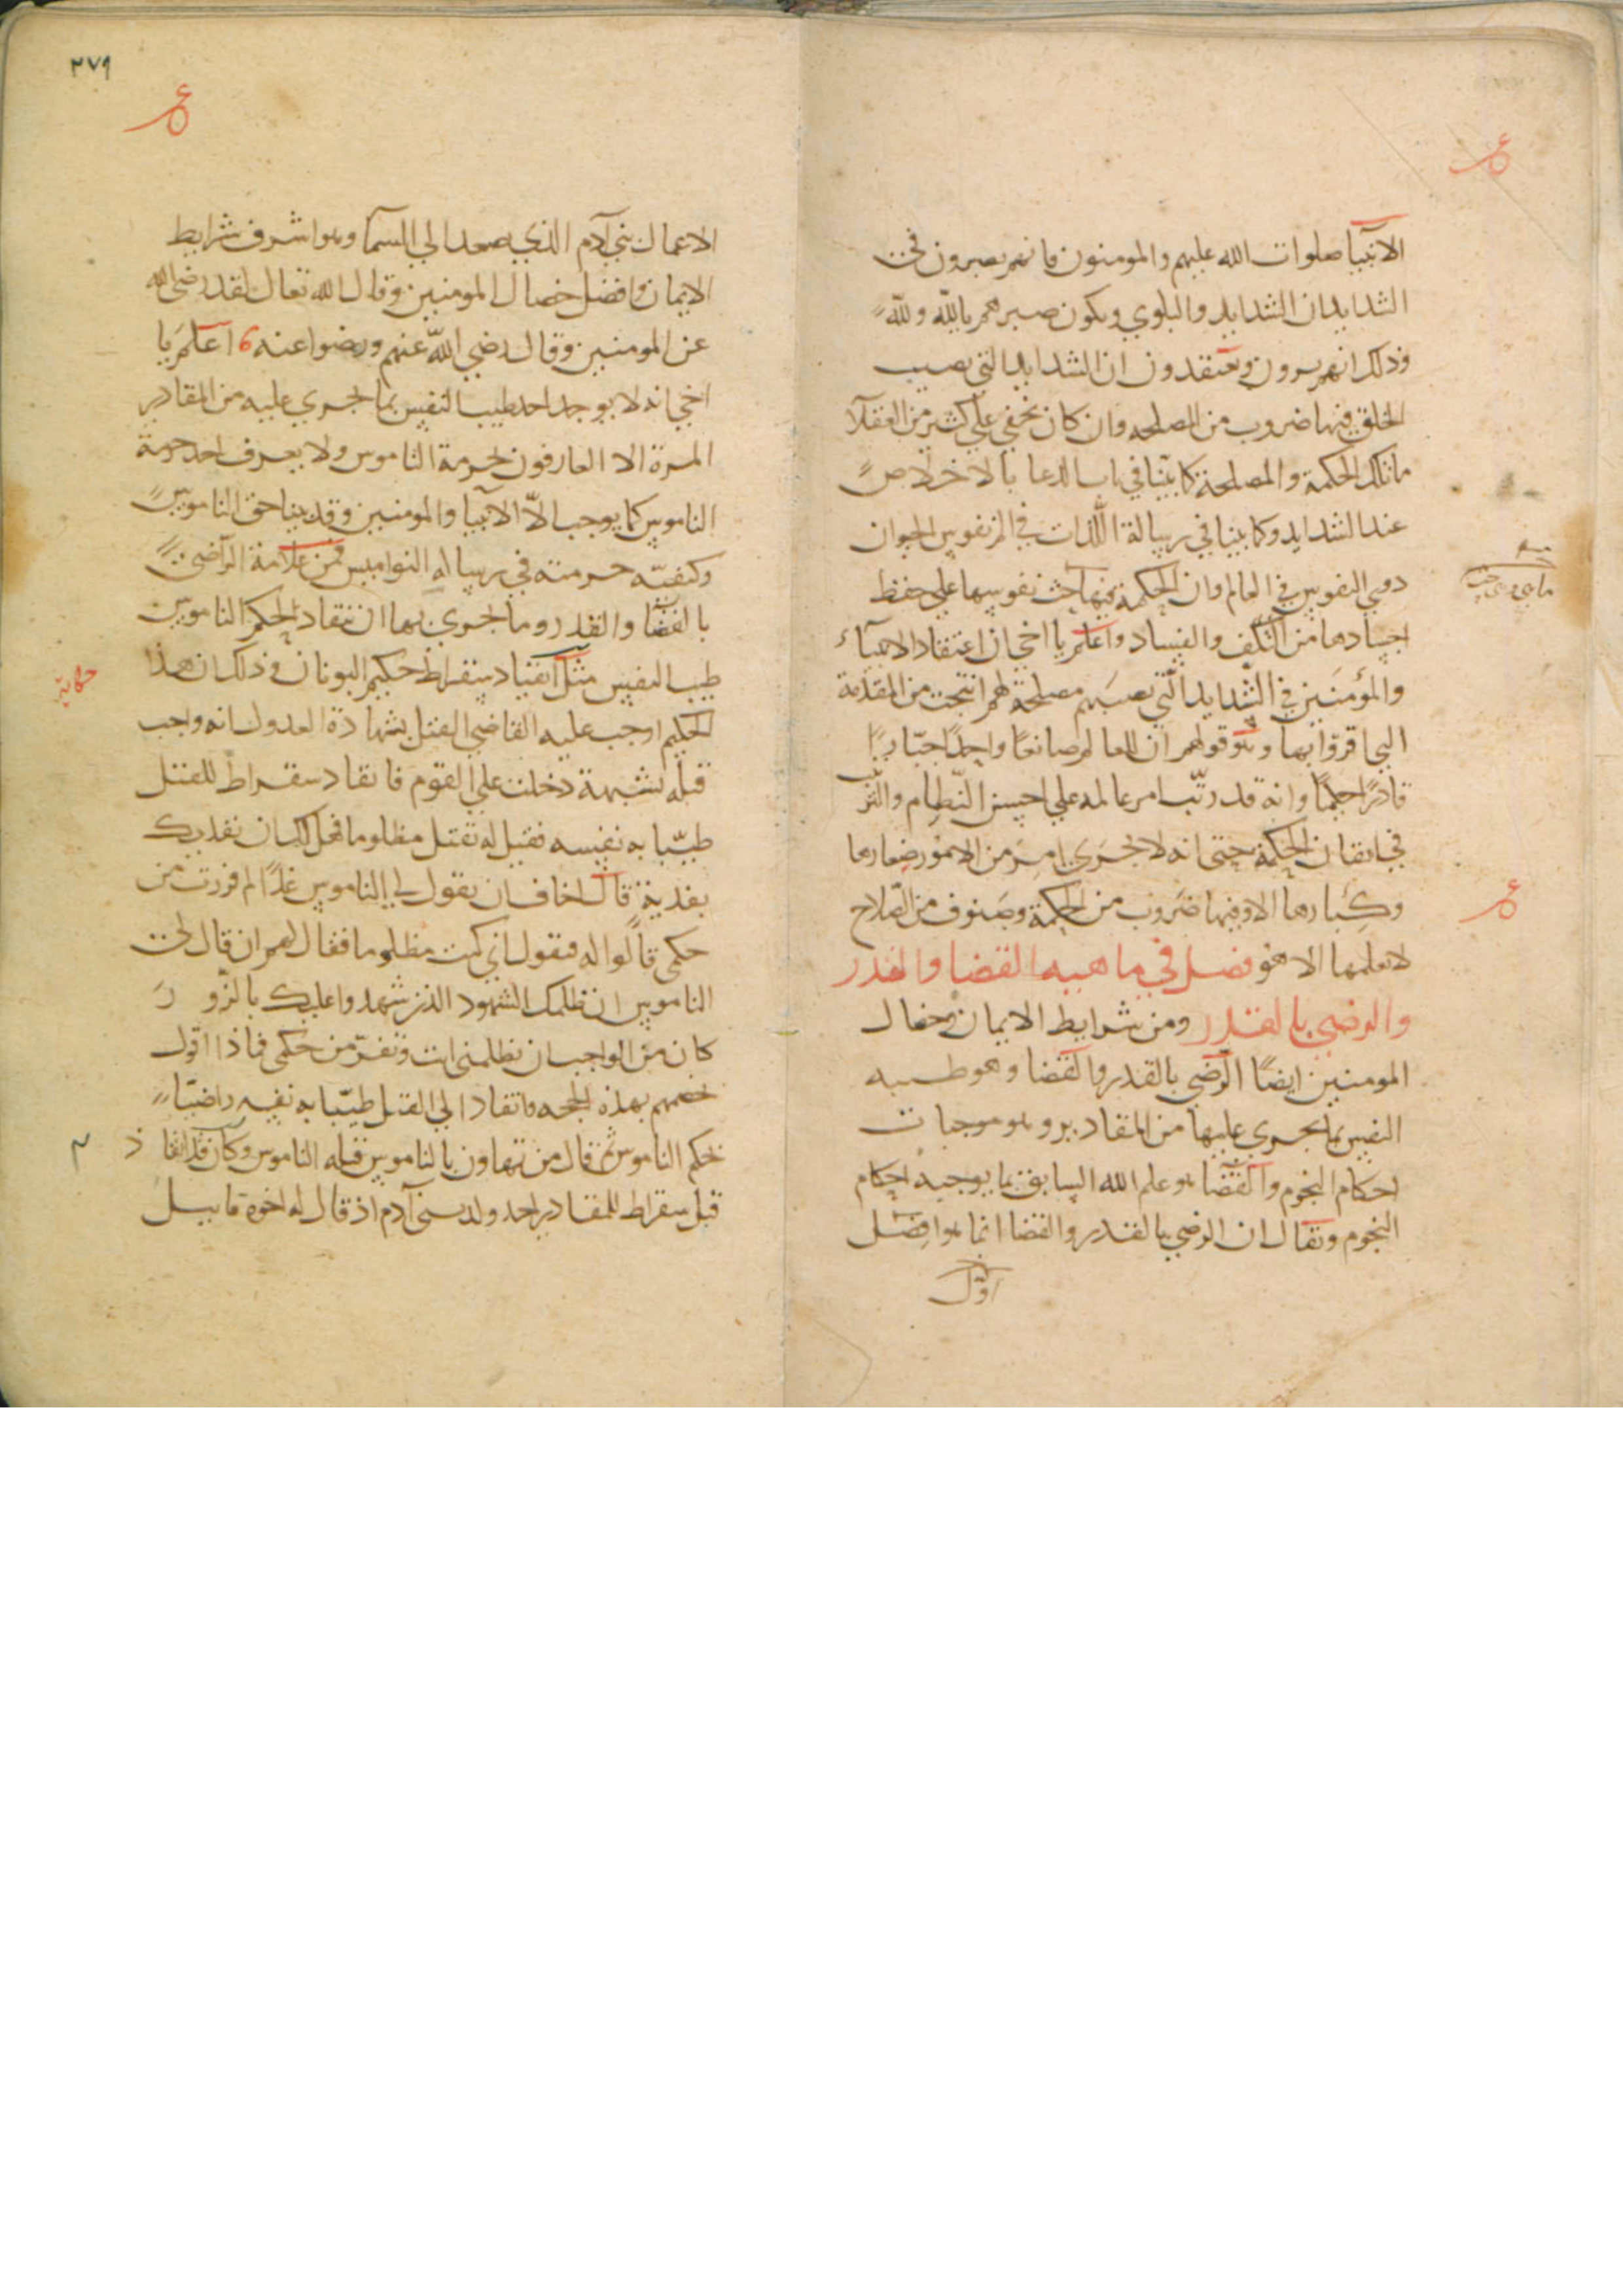 الانبيا صلوات الله عليهم والمومنون فانهم يصبرون في
الشدايدان الشدايد والبلوي ويكون صبرهم بالله ولله
وذلك انهم يرون ويعتقدون ان الشدايد التي تصيب
الخلق فيها ضروب من المصلحه وان كان يخفي علي كثير من العقلا
ما تلك الحكمة والمصلحة كما بينا في باب الدعا بالاخلاص
عند الشدايد وكما بينا في رسالة اللذات في الم نفوس الحيوان
دون النفوس في العالم وان الحكمة فيها حث نفوسها علي حفظ
اجسادها من التلف والفساد واعلم يا اخي ان اعتقاد الانبياء
والمؤمنين في الشدايد التي تصيبهم مصلحة لهم انتجت من المقدمة
التي اقروا بها وهو قولهم ان للعالم صانعًا واحدًا جبّارًا
قادرًا حكيمًا وانه قد رتّب امر عالمه علي احسن النّظام والترتيب
في اتقان الحكمة حتى انه لا يجري امر من الامور صغارها
وكبارها الا وفيها ضروب من الحكمة وصنوف من الصّلاح
لا يعلمها الا هو فصل في ماهيه القضا والقدر
والرضي بالقدر ومن شرايط الايمان وخصال
المومنين ايضًا الرّضي بالقدر والقضا وهو طيبه
النفس بما يجري عليها من المقادير وهو موجبات
احكام النجوم والقضا هو علم الله السابق بما يوجبه احكام
النجوم ويقال ان الرضي بالقدر والقضا انما هوا فضل
٣٧٩
الاعمال بني آدم الذي يصعد الي السما وهوا شرف شرايط
الايمان وافضل خصال المومنين وقال الله تعال لقد رضي الله
عن المومنين وقال رضي الله عنهم ورضوا عنه اعلم يا
اخي انه لا يوجد احد طيب النفس بما يجري عليه من المقادير
المرة الا العارفون بحرمة الناموس ولا يعرف احد حرمة
الناموس كما يوجب الاّ الانبيا والمومنين وقد بينا حق الناموس
وكيفيّه حرمته في رساله النواميس فمن علامة الراضي
بالقضا والقدر وما يجري بها ان ينقاد لحكم الناموس
طيب النفس مثل انقياد سقراط حكيم اليونان وذلك ان هذا
حكاية
الحكيم اوجب عليه القاضي القتل بشهادة العدول انه واجب
قتله بشبهة دخلت علي القوم فانقاد سقراط للقتل
طيّبا به نفسه فقيل له تقتل مظلوما فهل لك ان نفديك
بفدية قال اخاف ان يقول لي الناموس غدًا لم فررت من
حكمي قالوا له فتقول اني كنت مظلوما فقال لهم ان قال لي
الناموس ان ظلمك الشهود الذين شهدوا عليك بالزور
كان من الواجب ان تظلمني انت وتفر من حكمي فماذا اقول
فخصمهم بهذه الحجه وانقاد الي القتل طيّبا به نفسه راضيًا
بحكم الناموس ثم قال من تهاون بالناموس قتله الناموس وكان قد انقاد
قبل سقراط للمقادير احد ولد بني آدم اذ قال له اخوه قابيل